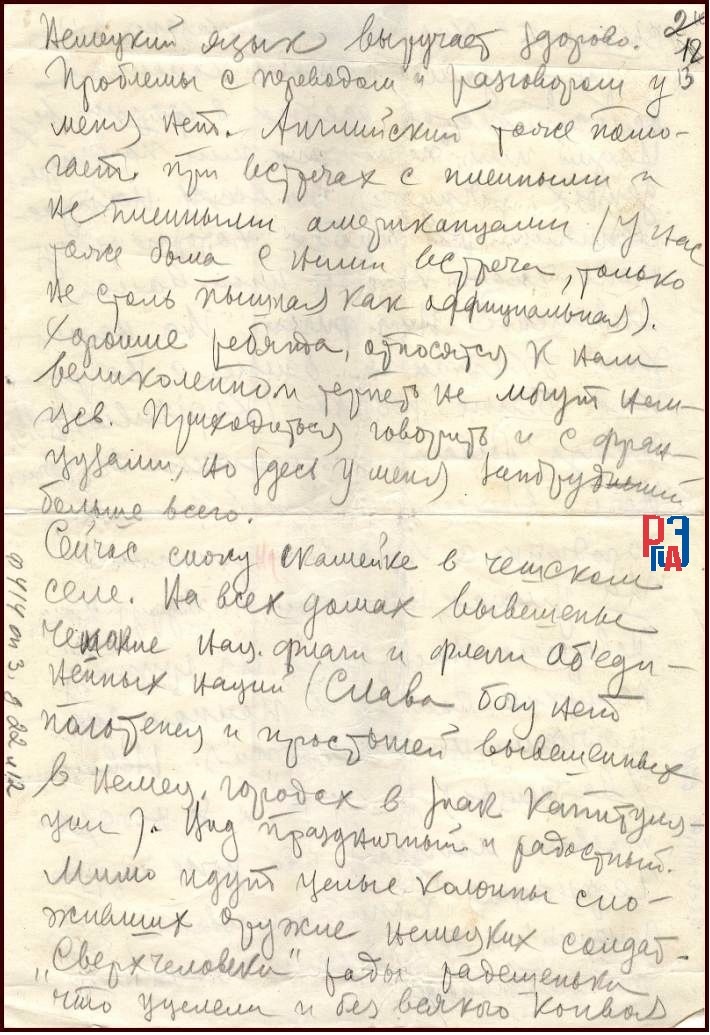 Немецкий язык выручает здорово.
24
12
13
Проблемы с переводом и разговором у
меня нет. Английский тоже помо-
гает при встречах с пленными и
не пленными американцами (у нас
тоже была с ними встреча, только
не столь пышная как официальная).
Хорошие ребята, относятся к нам
великолепно и терпеть не могут нем-
цев. Приходиться говорить и с фран-
цузами, но здесь у меня
больше всего.
Сейчас сижу скамейке в чешском
селе. На всех домах вывешены
чешские нац. флаги и флаги Об'еди-
нённых наций (Слава богу нет
полотенец и простыней вывешенных
в немец. городах в знак капитуля-
ции). Вид праздничный и радостный.
Мимо идут целые колонны сло-
живших оружие немецких солдат.
„Сверхчеловеки" рады радешеньки
что уцелели и без всякого конвоя
ф 414 оп 3, д 22 л 12
РГАЭ